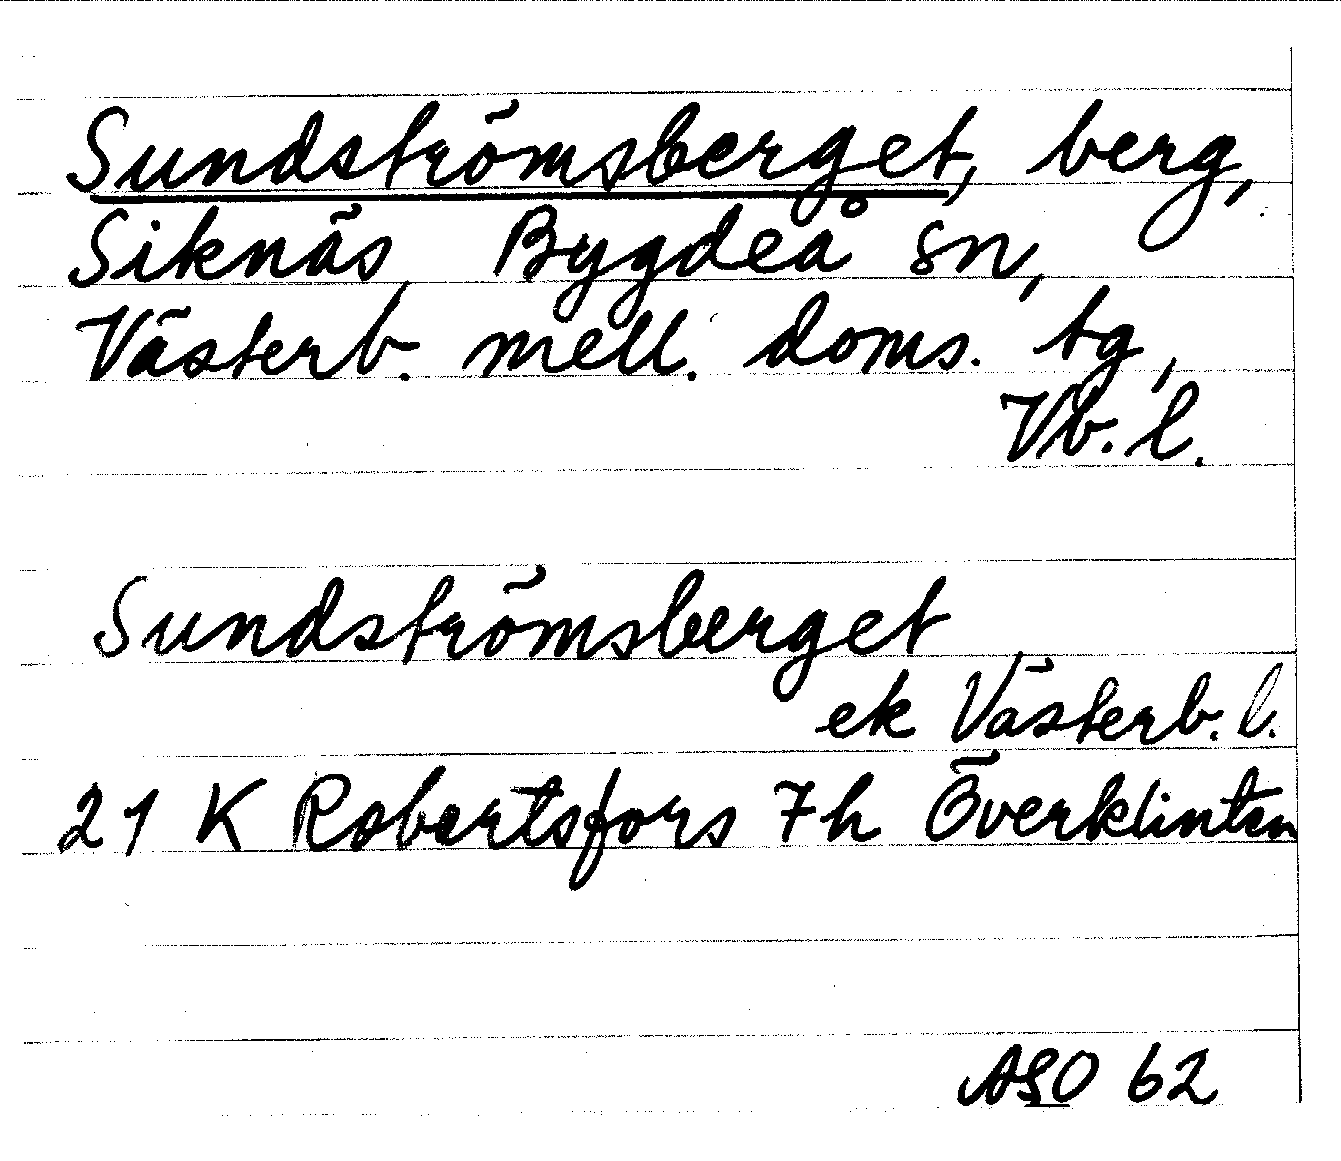 Sundströmsberget, berg,
Siknäs, Bygdeå sn,
Västerb. mell. doms. tg,
Vb. l.
Sundströmsberget
ek Västerb. l.
21 K Robertsfors 7h Överklinten
ASO 62